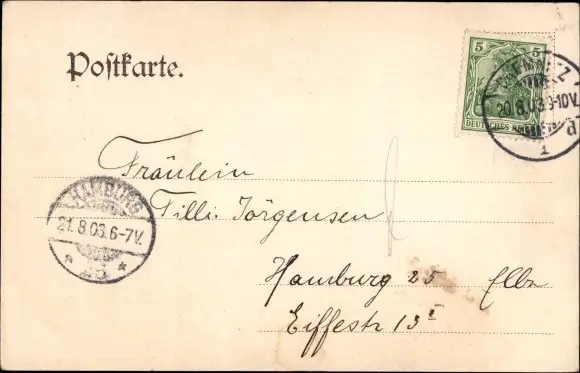 Postkarte.
5 5
DEUTSCHES REICH
CHEMNITZ
20.8.03.9-10V.
1
Fräulein
Tilli Jörgensen
HAMBURG
21.8.03.6-7V.
25
Hamburg 25 Elbe
Eiffestr 13 I